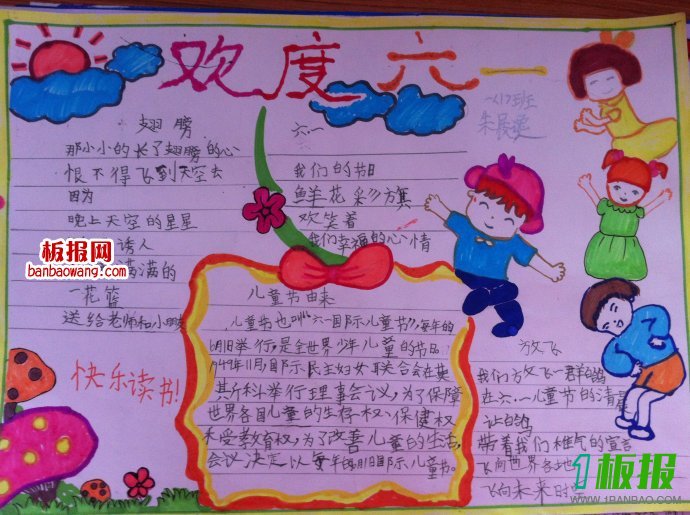 欢度六一
一(17)班
翅膀
那小小的长了翅膀的心
恨不得飞到天空去
因为
晚上天空的星星
诱人
满满的
一花篮
送给老师和小朋
六一
我们的节日
鲜花彩旗
欢笑着
我们幸福的心情
板报网
banbaowang.com
快乐读书!
儿童节由来
儿童节也叫"六一国际儿童节",每年的
6月1日举行,是全世界少年儿童的节日。
1949年11月国际民主妇女联合会在莫
斯科举行理事会议,为了保障
世界各国儿童的生存权、保健权
和受教育权,为了改善儿童的生活,
会议决定以每年的6月1日国际儿童节。
放飞
我们放飞一群白鸽
在六一儿童节的清晨
让白鸽
带着我们稚气的宣言
飞向世界各地
飞向未来时
1板报
WWW.1BANBAO.COM